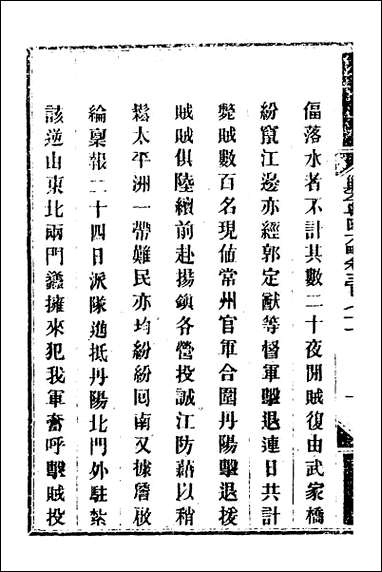 偪落水者不計其數二十夜間賊復由武家橋
紛竄江邊亦經郭定猷等督軍擊退連日共計
斃賊數百名現値常州官軍合圍丹陽擊退援
賊賊俱陸續前赴揚鎮各營投誠江防藉以稍
鬆太平洲一帶難民亦均紛紛回南又據詹啟
綸稟報二十四日派隊進抵丹陽北門外駐紮
該逆由東北兩門蠭擁來犯我軍奮呼擊賊投